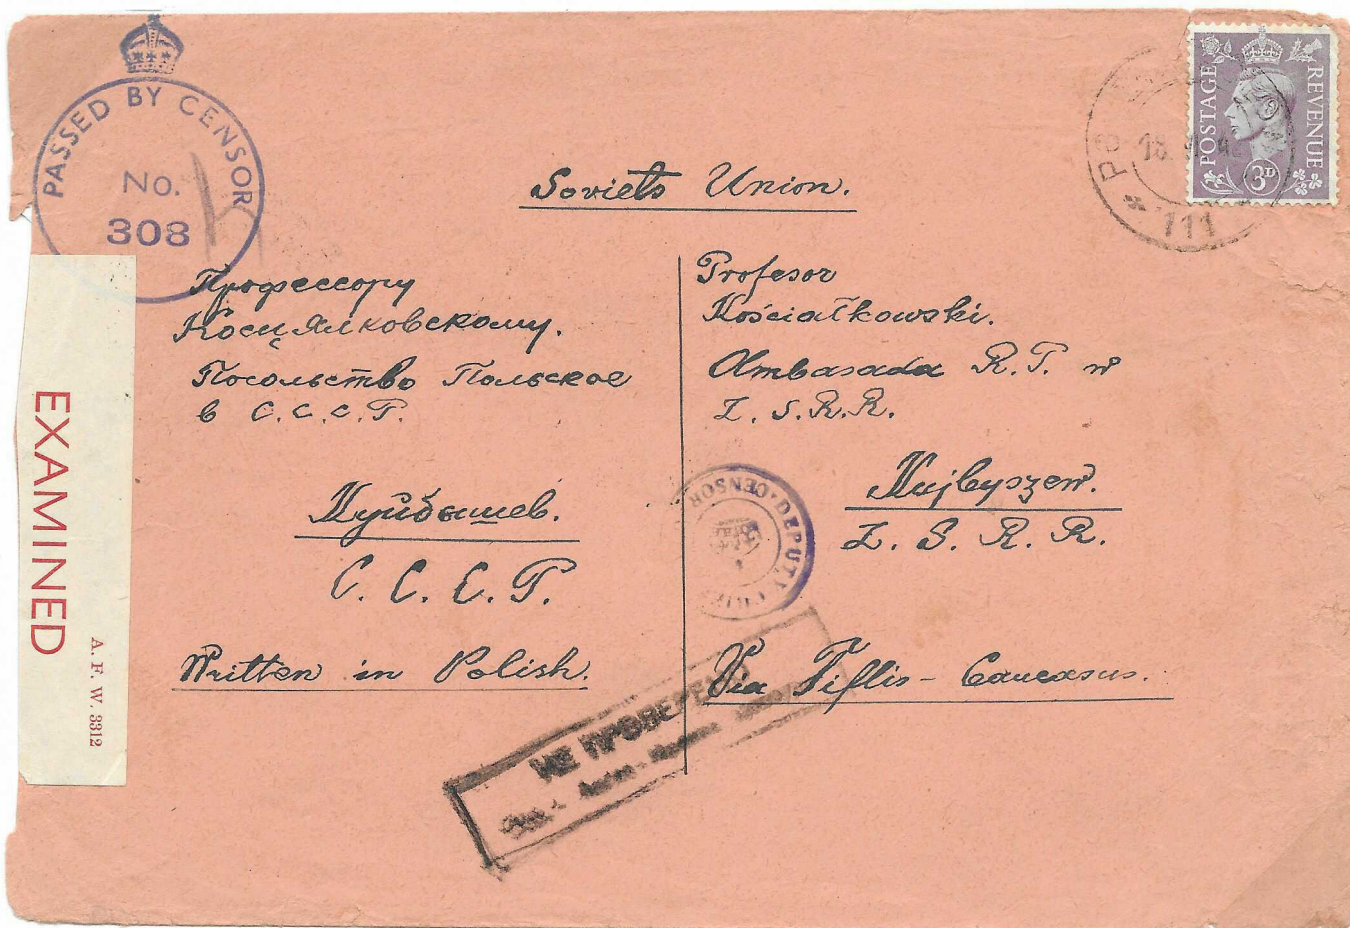 PASSED BY CENSOR
No.
308
POSTAGE REVENUE
3D
111
Soviets Union.
Профессору
Косцялковскому.
Посольство Польское
в С.С.С.Р.
Куйбышев.
С. С. С. Р.
Written in Polish.
Profesor
Kościałkowski.
Ambasada R.P. w
Z.S.R.R.
Kujbyszew.
Z. S. R. R.
Via Tiflis - Caucasus.
DEPUTY CHIEF CENSOR
НЕ ПРОВЕРЕНО
EXAMINED
A. F. W. 3312